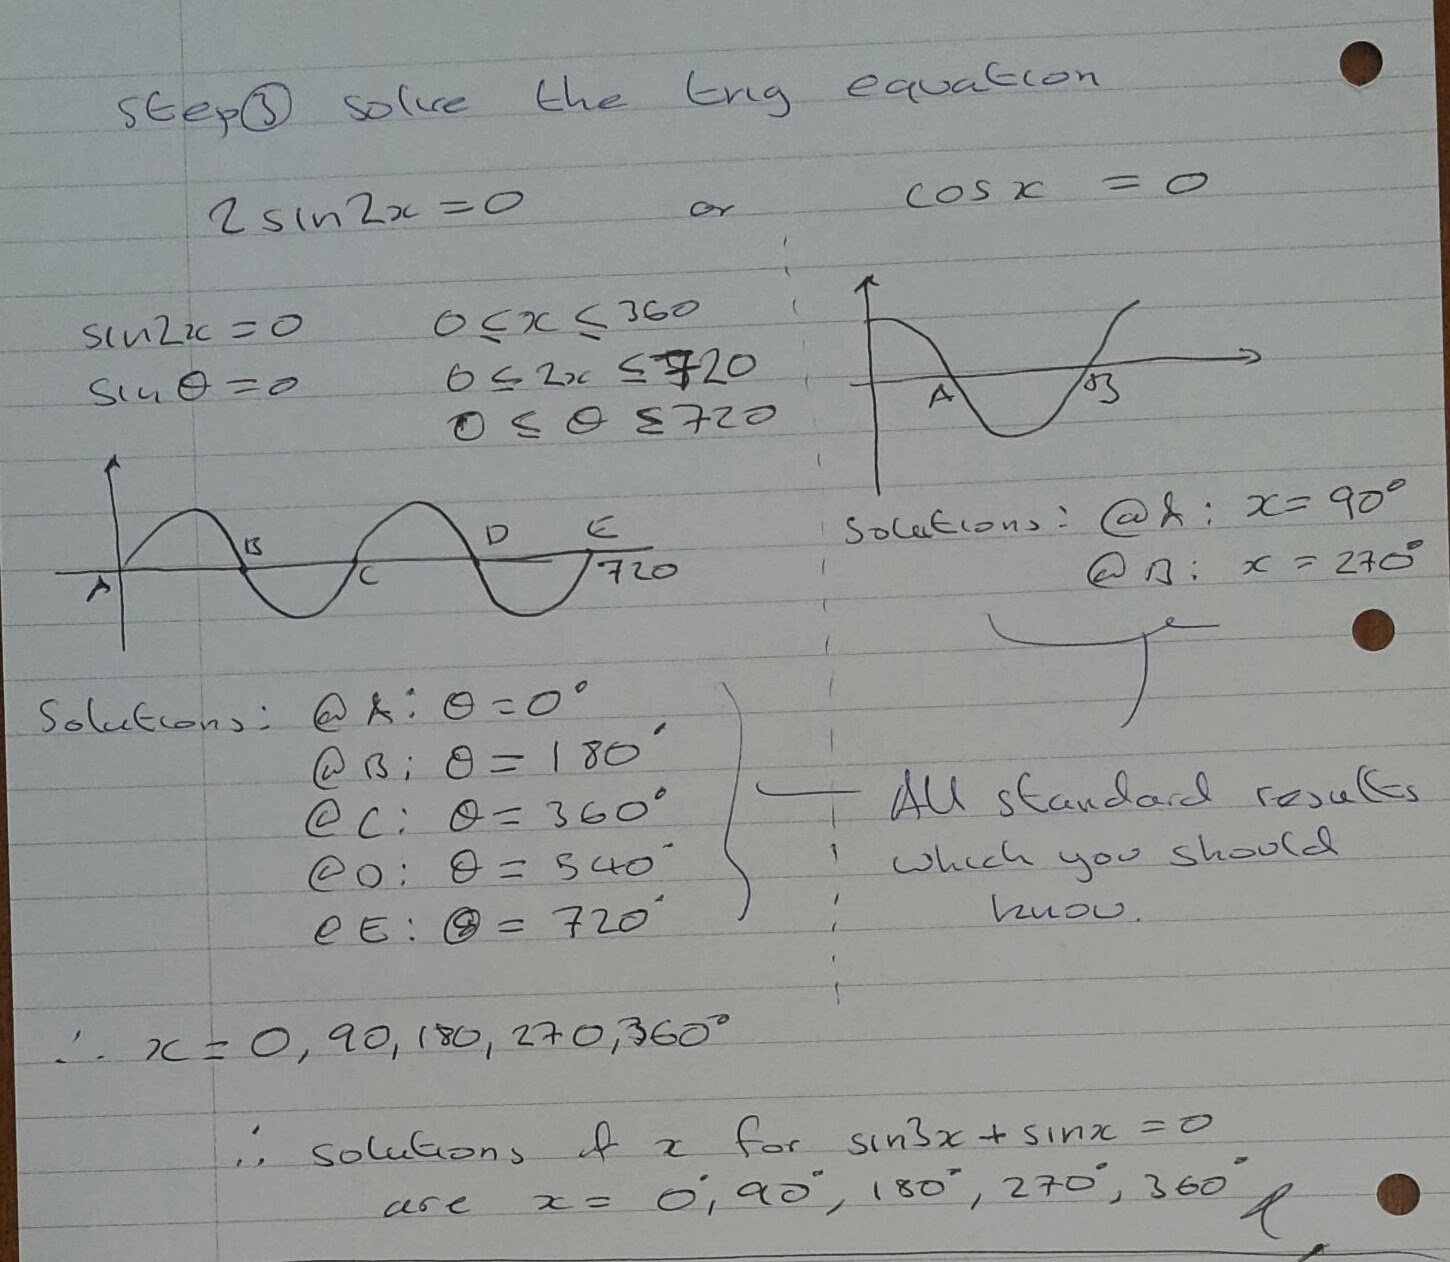 Step ③ solve the trig equation
2 sin2x = 0 or cosx = 0
sin2x = 0 0 ≤ x ≤ 360
sin θ = 0 0 ≤ 2x ≤ 720
0 ≤ θ ≤ 720
A B
A B C D E
720
Solutions: @A: x = 90°
@B: x = 270°
Solutions: @A: θ = 0°
@B: θ = 180°
@C: θ = 360°
@D: θ = 540°
@E: θ = 720°
All standard results
which you should
know.
∴ x = 0, 90, 180, 270, 360°
∴ solutions of x for sin3x + sinx = 0
are x = 0°, 90°, 180°, 270°, 360°